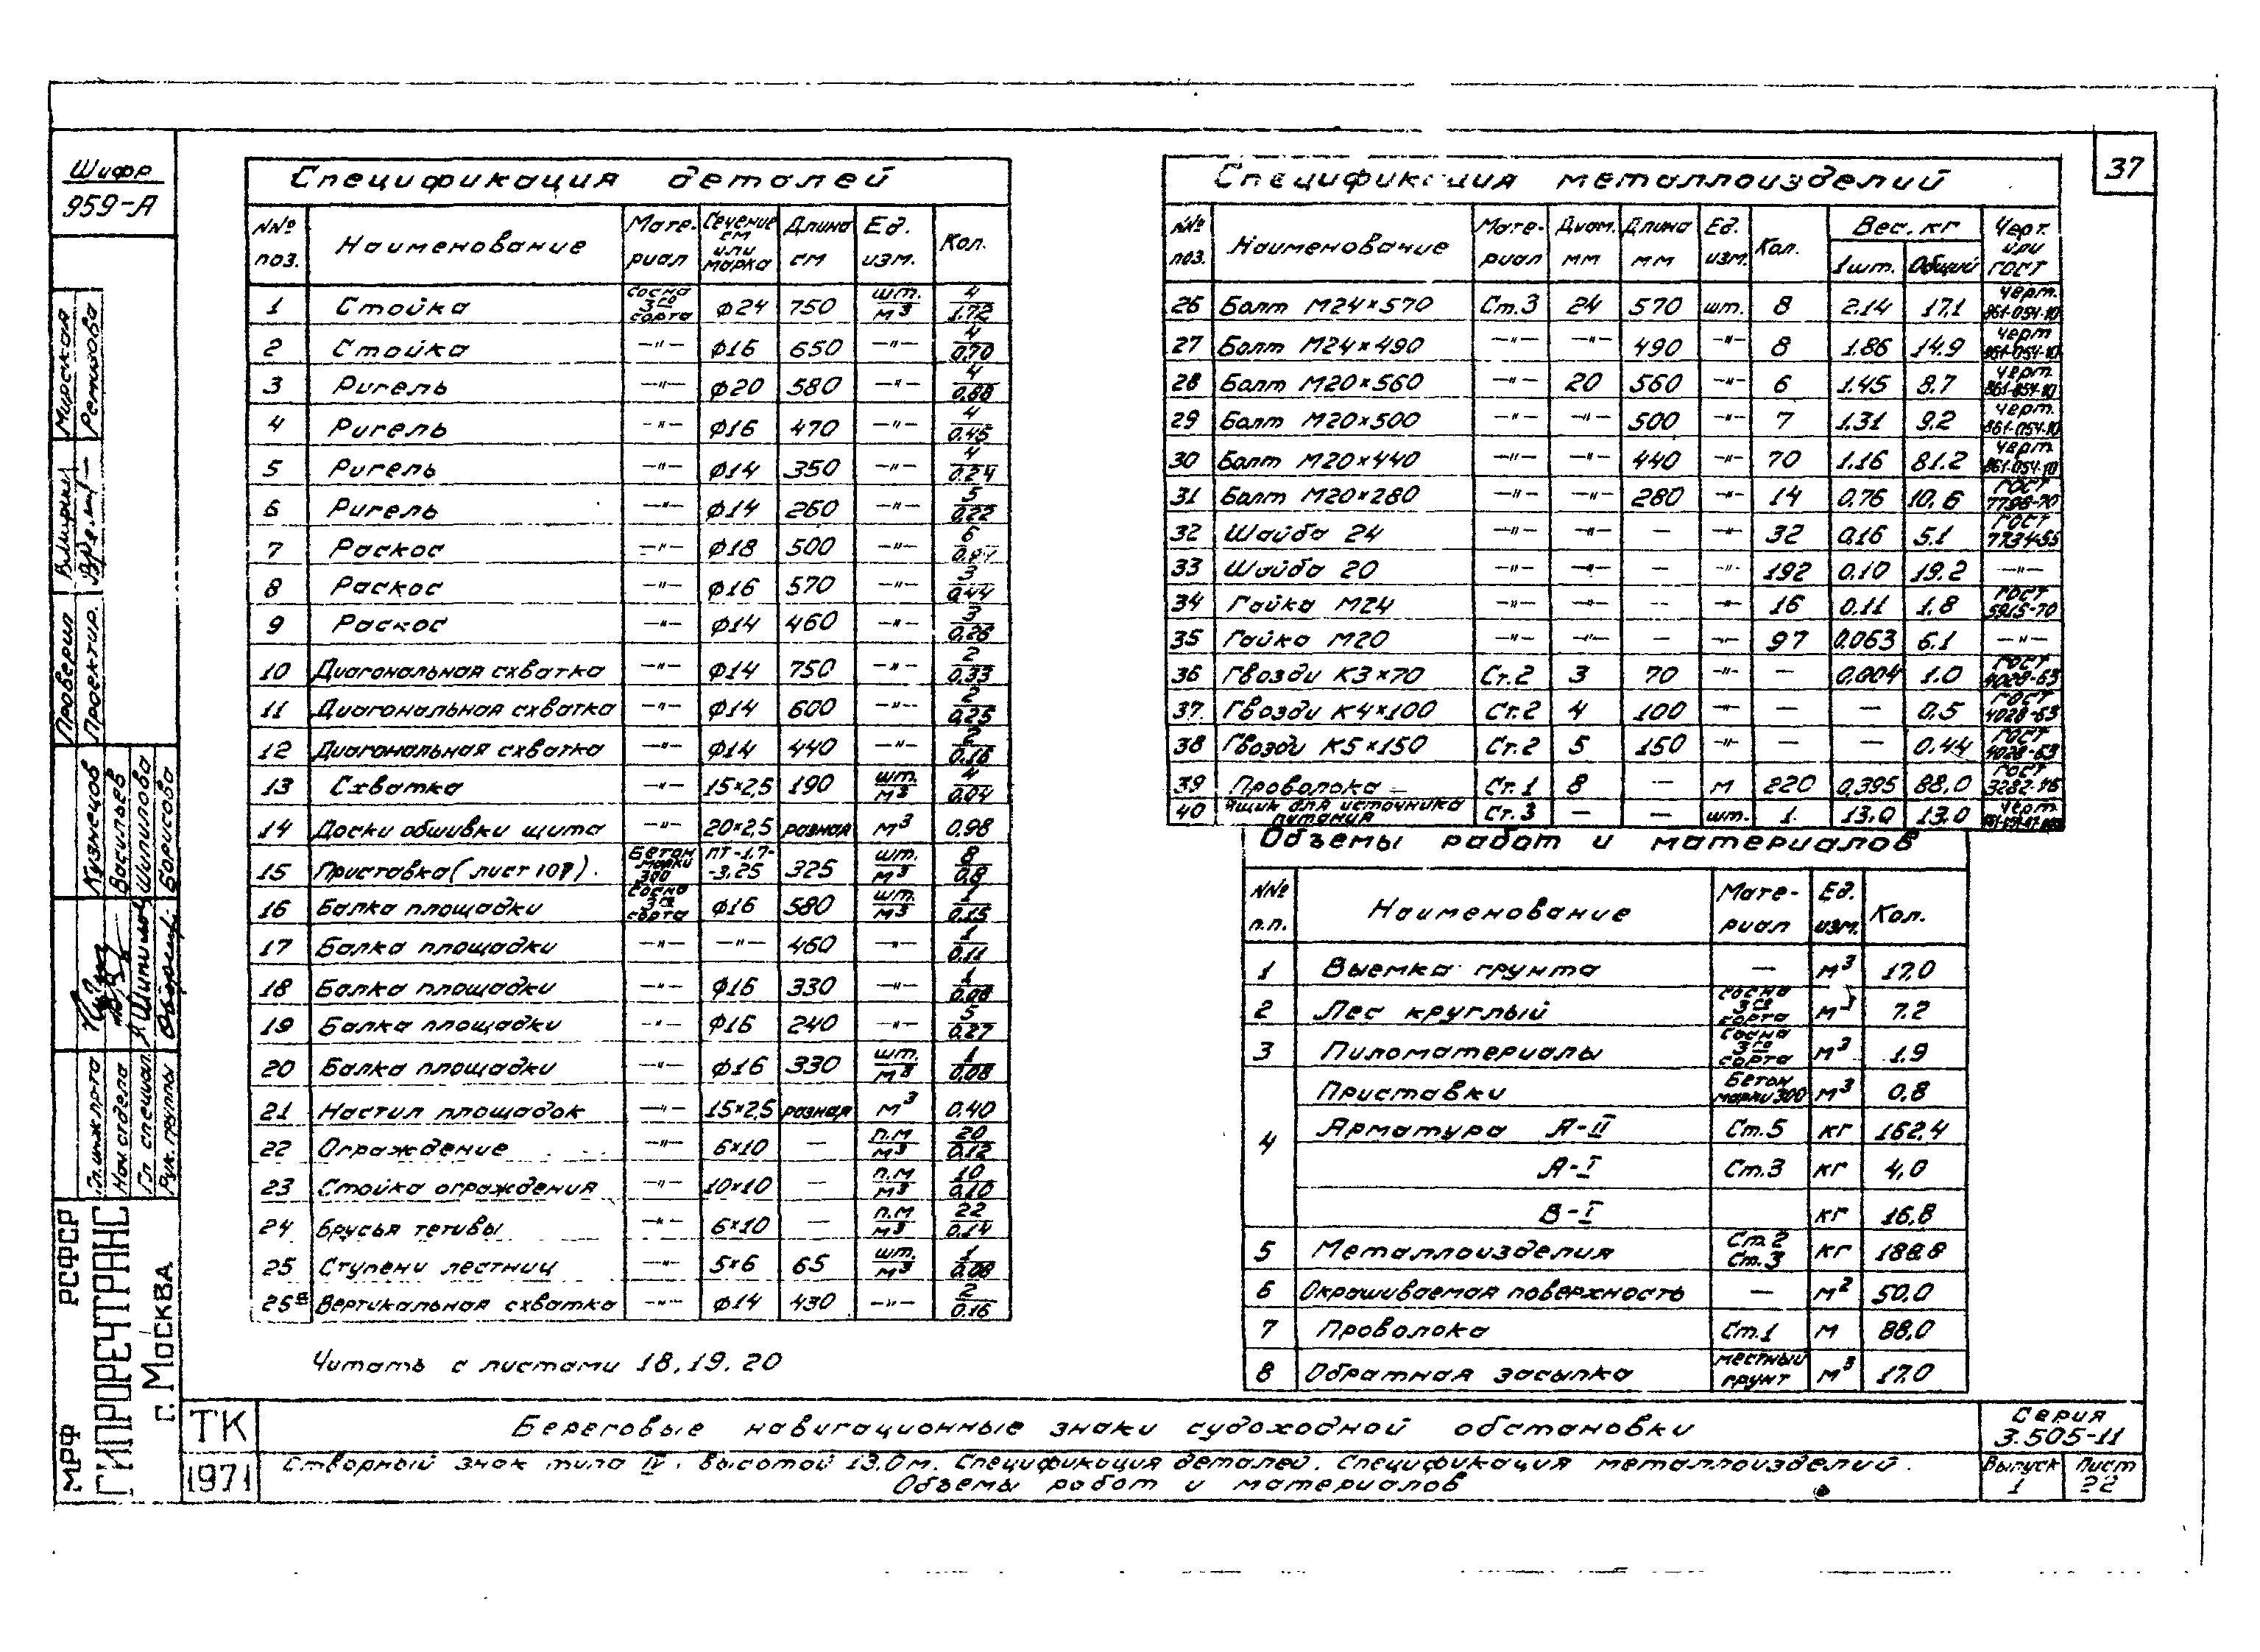 37
Шифр
959-А
Спецификация деталей
№№ поз. Наименование Материал Сечение см или марка Длина см Ед. изм. Кол.
1 Стойка сосна 3го сорта ф24 750 шт./м³ 4/1.72
2 Стойка —"— ф16 650 —"— 4/0.70
3 Ригель —"— ф20 580 —"— 4/0.88
4 Ригель —"— ф16 470 —"— 4/0.45
5 Ригель —"— ф14 350 —"— 4/0.24
6 Ригель —"— ф14 260 —"— 5/0.22
7 Раскос —"— ф18 500 —"— 6
8 Раскос —"— ф16 570 —"— 3/0.44
9 Раскос —"— ф14 460 —"— 3/0.26
10 Диагональная схватка —"— ф14 750 —"— 2/0.33
11 Диагональная схватка —"— ф14 600 —"— 2/0.25
12 Диагональная схватка —"— ф14 440 —"— 2/0.16
13 Схватка —"— 15×2,5 190 шт./м³ 4/0.04
14 Доски обшивки щита —"— 20×2,5 разная м³ 0.98
15 Приставка (лист 107). Бетон марки 300 ПТ-1.7-3.25 325 шт./м³ 8/0.8
16 Балка площадки Сосна 3го сорта ф16 580 шт./м³ 1/0.15
17 Балка площадки —"— —"— 460 —"— 1/0.11
18 Балка площадки —"— ф16 330 —"— 1/0.08
19 Балка площадки —"— ф16 240 —"— 5/0.27
20 Балка площадки —"— ф16 330 шт./м³ 1/0.08
21 Настил площадок —"— 15×2,5 разная м³ 0.40
22 Ограждение —"— 6×10 — п.м/м³ 20/0.12
23 Стойка ограждения —"— 10×10 — п.м/м³ 10/0.10
24 Брусья тетивы —"— 6×10 — п.м/м³ 22/0.14
25 Ступени лестниц —"— 5×6 65 шт./м³ 1/0.08
25а Вертикальная схватка —"— ф14 430 —"— 2/0.16
Читать с листами 18, 19, 20
Спецификация металлоизделий
№№ поз. Наименование Материал Диам. мм Длина мм Ед. изм. Кол. Вес, кг 1шт. Общий Черт. или ГОСТ
26 Болт М24×570 Ст.3 24 570 шт. 8 2.14 17.1 черт. 861-054-10
27 Болт М24×490 —"— —"— 490 —"— 8 1.86 14.9 черт 861-054-10
28 Болт М20×560 —"— 20 560 —"— 6 1.45 8.7 черт. 861-054-10
29 Болт М20×500 —"— —"— 500 —"— 7 1.31 9.2 черт. 861-054-10
30 Болт М20×440 —"— —"— 440 —"— 70 1.16 81.2 черт. 861-054-10
31 Болт М20×280 —"— —"— 280 —"— 14 0.76 10.6 ГОСТ 7798-70
32 Шайба 24 —"— —"— — —"— 32 0.16 5.1 ГОСТ
33 Шайба 20 —"— —"— — —"— 192 0.10 19.2 —"—
34 Гайка М24 —"— —"— — —"— 16 0.11 1.8 ГОСТ 5915-70
35 Гайка М20 —"— —"— — —"— 97 0.063 6.1 —"—
36 Гвозди К3×70 Ст.2 3 70 —"— — 0.004 1.0 ГОСТ 4028-63
37 Гвозди К4×100 Ст.2 4 100 —"— — — 0.5 ГОСТ 4028-63
38 Гвозди К5×150 Ст.2 5 150 —"— — — 0.44 ГОСТ 4028-63
39 Проволока Ст.1 8 — м 220 0.395 88,0 ГОСТ 3282-46
40 Ящик для источника питания Ст.3 — — шт. 1. 13.0 13.0 черт.
Объемы работ и материалов
№№ п.п. Наименование Материал Ед. изм. Кол.
1 Выемка грунта — м³ 17.0
2 Лес круглый сосна 3го сорта м³ 7.2
3 Пиломатериалы сосна 3го сорта м³ 1.9
4 Приставки Бетон марки 300 м³ 0.8
Арматура А-II Ст.5 кг 162,4
А-I Ст.3 кг 4,0
В-I кг 16,8
5 Металлоизделия Ст.2 Ст.3 кг 188.8
6 Окрашиваемая поверхность — м² 50.0
7 Проволока Ст.1 м 88,0
8 Обратная засыпка местный грунт м³ 17.0
Мирская
Ремизова
Проверил
Проектир.
Кузнецов
Васильев
Шипилова
Борисова
Гл.инж.пр-та
Нач отдела
Гл. специал.
Рук. группы
МРФ РСФСР
ГИПРОРЕЧТРАНС
г. Москва
ТК
1971
Береговые навигационные знаки судоходной обстановки
Створный знак типа IV, высотой 13.0м. Спецификация деталей. Спецификация металлоизделий.
Объемы работ и материалов
Серия
3.505-11
Выпуск
1
Лист
22